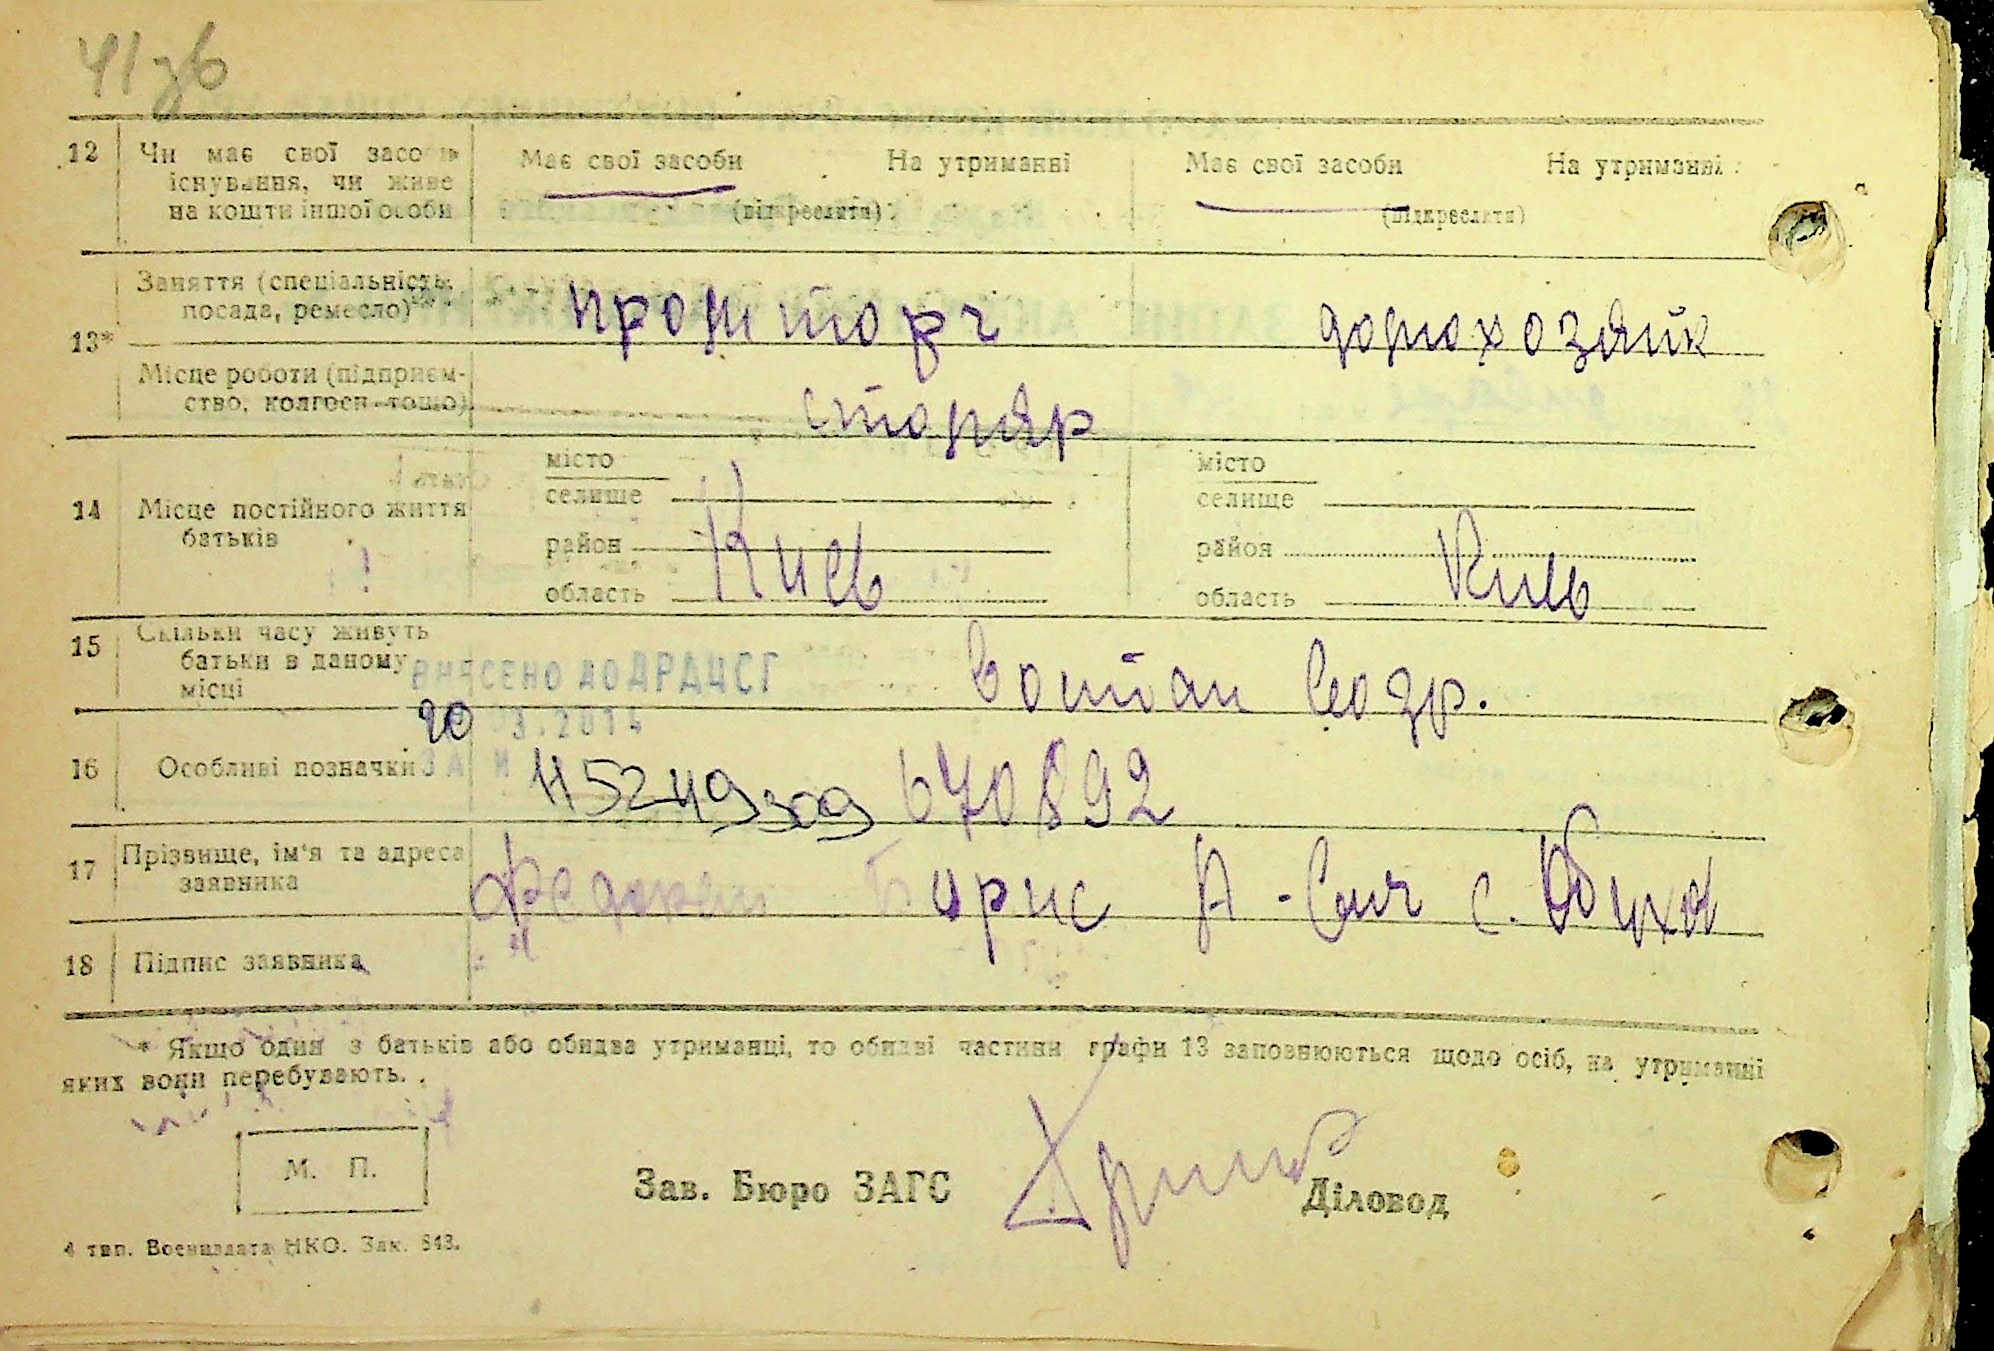 41зв
12 Чи має свої засоби Має свої засоби На утриманні Має свої засоби На утриманні
існування, чи живе
на кошти іншої особи (підкреслити) (підкреслити)
Заняття (спеціальність,
посада, ремесло) домохозяйк
13*
Місце роботи (підприєм-
ство, колгосп тощо) столяр
місто місто
селище селище
14 Місце постійного життя
батьків
район район
область Киев область Киев
15 Скільки часу живуть
батьки в даному
місці
ВНЕСЕНО ДО ДРАЦСГ
20 03.2014
16 Особливі позначки ЗА И 115249309 670892
17 Прізвище, ім'я та адреса
заявника Борис А - с.
18 Підпис заявника
* Якщо один з батьків або обидва утриманці, то обидві частини графи 13 заповнюються щодо осіб, на утриманні
яких вони перебувають.
М. П.
Зав. Бюро ЗАГС Діловод
4 тип. Воениздата НКО. Зак. 843.